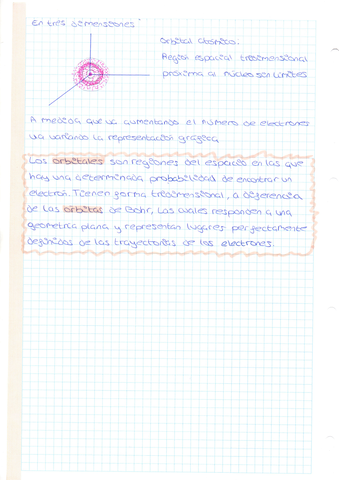 En tres dimensiones
Orbital atómico.
Región espacial tridimensional
próxima al núcleo sin límites
A medida que va aumentando el número de electrones
va variando la representación gráfica
Los orbitales son regiones del espacio en las que
hay una determinada probabilidad de encontrar un
electrón. Tienen forma tridimensional, a diferencia
de las órbitas de Bohr, las cuales responden a una
geometría plana y representan lugares perfectamente
definidos de las trayectorias de los electrones.